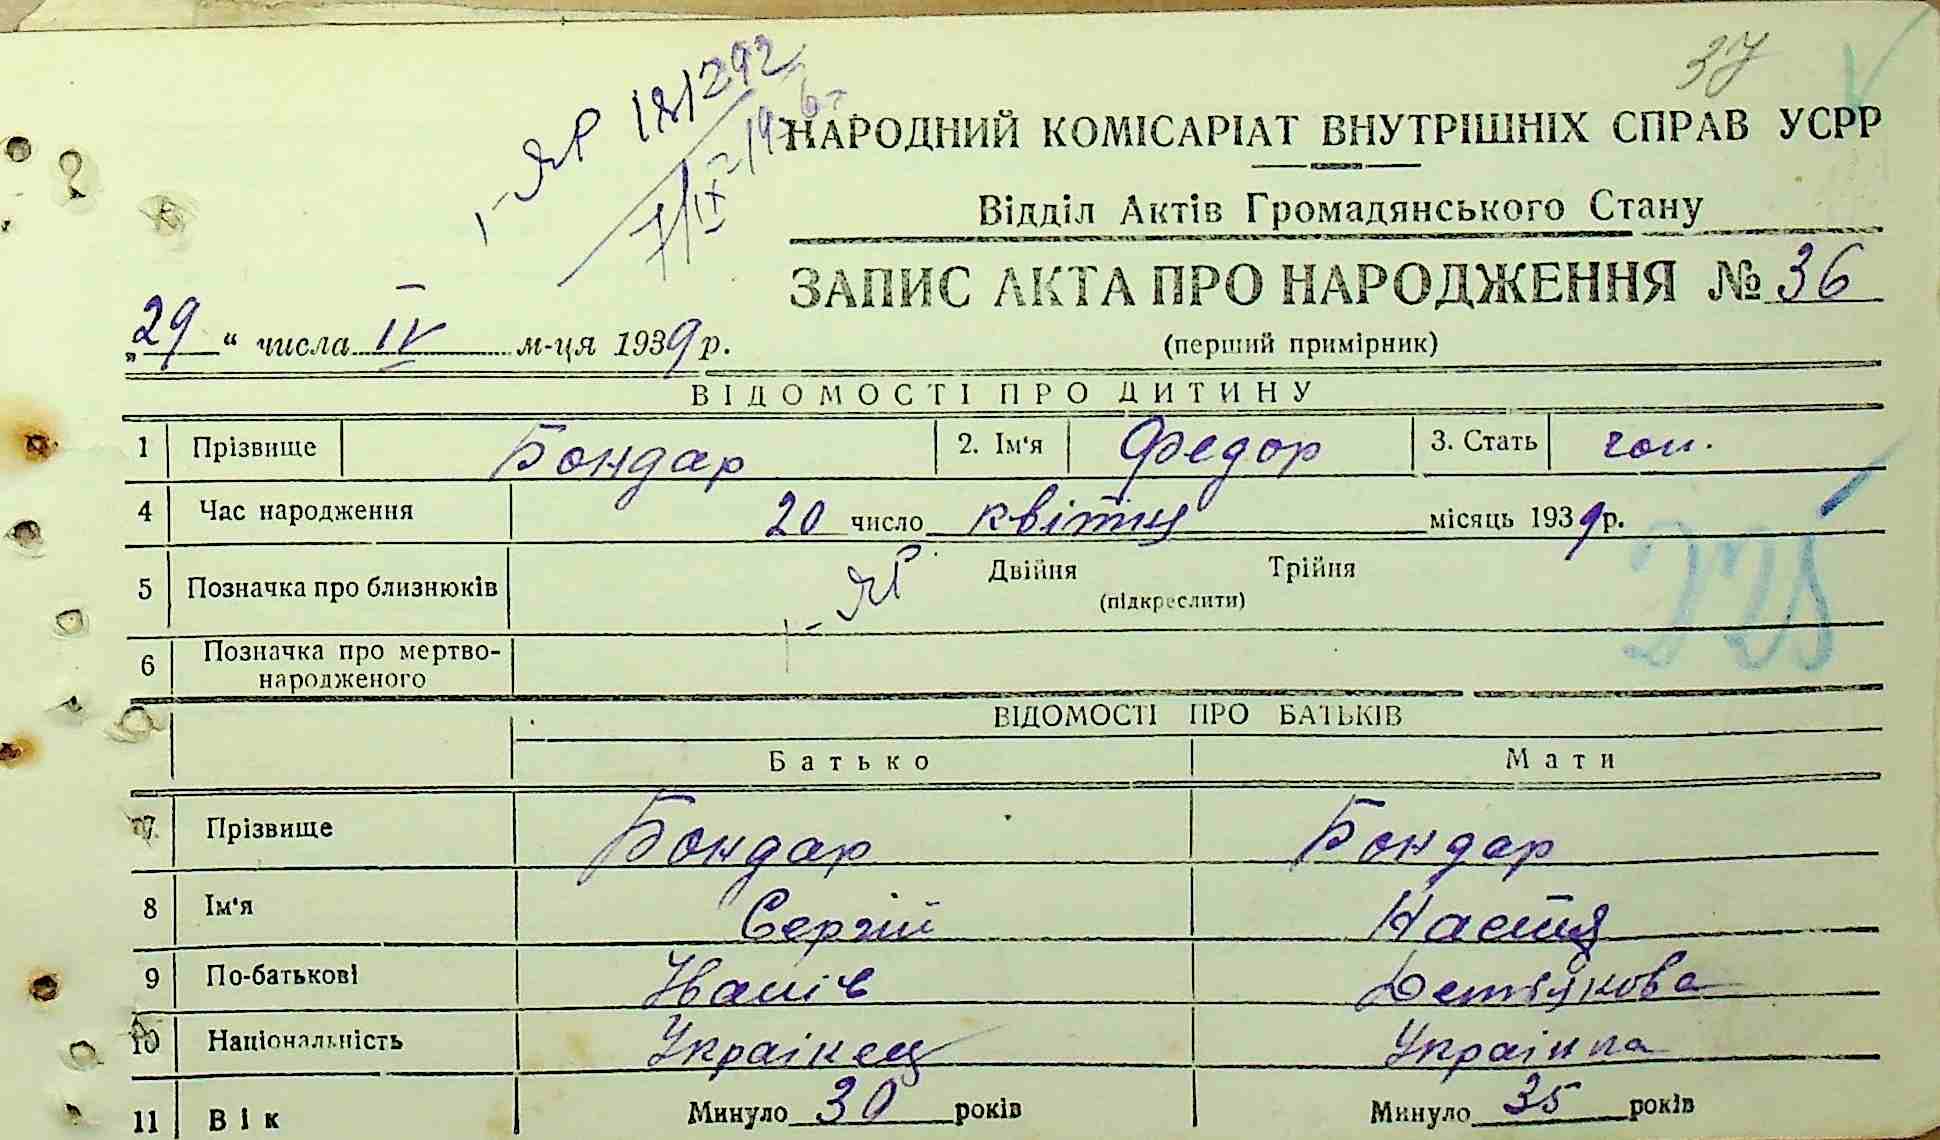 37
ЯР 181292
7/IX-1976г
НАРОДНИЙ КОМІСАРІАТ ВНУТРІШНІХ СПРАВ УСРР
Відділ Актів Громадянського Стану
ЗАПИС АКТА ПРО НАРОДЖЕННЯ № 36
„29“ числа IV м-ця 1939 р.
(перший примірник)
ВІДОМОСТІ ПРО ДИТИНУ
1 Прізвище Бондар 2. Ім'я Федор 3. Стать чол.
4 Час народження 20 число квітну місяць 1939 р.
5 Позначка про близнюків І-ЯР Двійня Трійня
(підкреслити)
225
6 Позначка про мертво-
народженого
ВІДОМОСТІ ПРО БАТЬКІВ
Батько Мати
7 Прізвище Бондар Бондар
8 Ім'я Сергій Настя
9 По-батькові
10 Національність Украінец Украінка
11 Вік Минуло 30 років Минуло 35 років